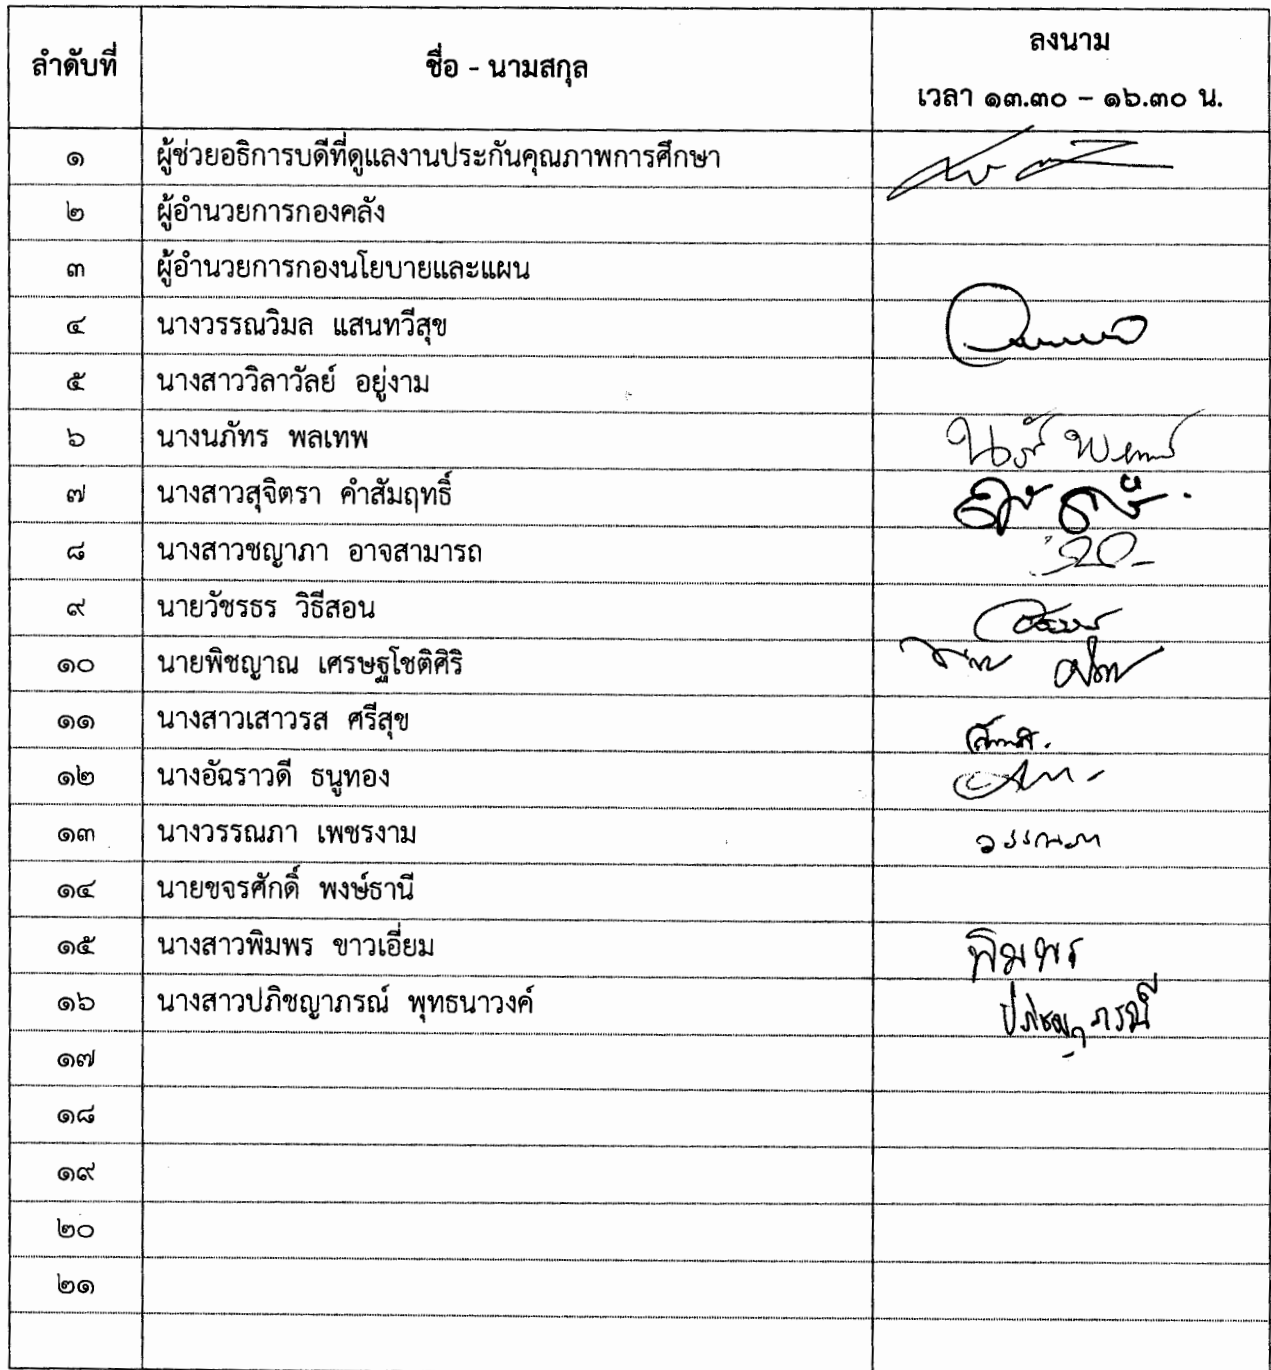 ลำดับที่ ชื่อ - นามสกุล ลงนาม
เวลา ๑๓.๓๐ – ๑๖.๓๐ น.
๑ ผู้ช่วยอธิการบดีที่ดูแลงานประกันคุณภาพการศึกษา
๒ ผู้อำนวยการกองคลัง
๓ ผู้อำนวยการกองนโยบายและแผน
๔ นางวรรณวิมล แสนทวีสุข
๕ นางสาววิลาวัลย์ อยู่งาม
๖ นางนภัทร พลเทพ
๗ นางสาวสุจิตรา คำสัมฤทธิ์
๘ นางสาวชญาภา อาจสามารถ
๙ นายวัชรธร วิธีสอน
๑๐ นายพิชญาณ เศรษฐโชติศิริ
๑๑ นางสาวเสาวรส ศรีสุข
๑๒ นางอัฉราวดี ธนูทอง
๑๓ นางวรรณภา เพชรงาม วรรณภา
๑๔ นายขจรศักดิ์ พงษ์ธานี
๑๕ นางสาวพิมพร ขาวเอี่ยม พิมพร
๑๖ นางสาวปภิชญาภรณ์ พุทธนาวงค์ ปภิชญาภรณ์
๑๗
๑๘
๑๙
๒๐
๒๑